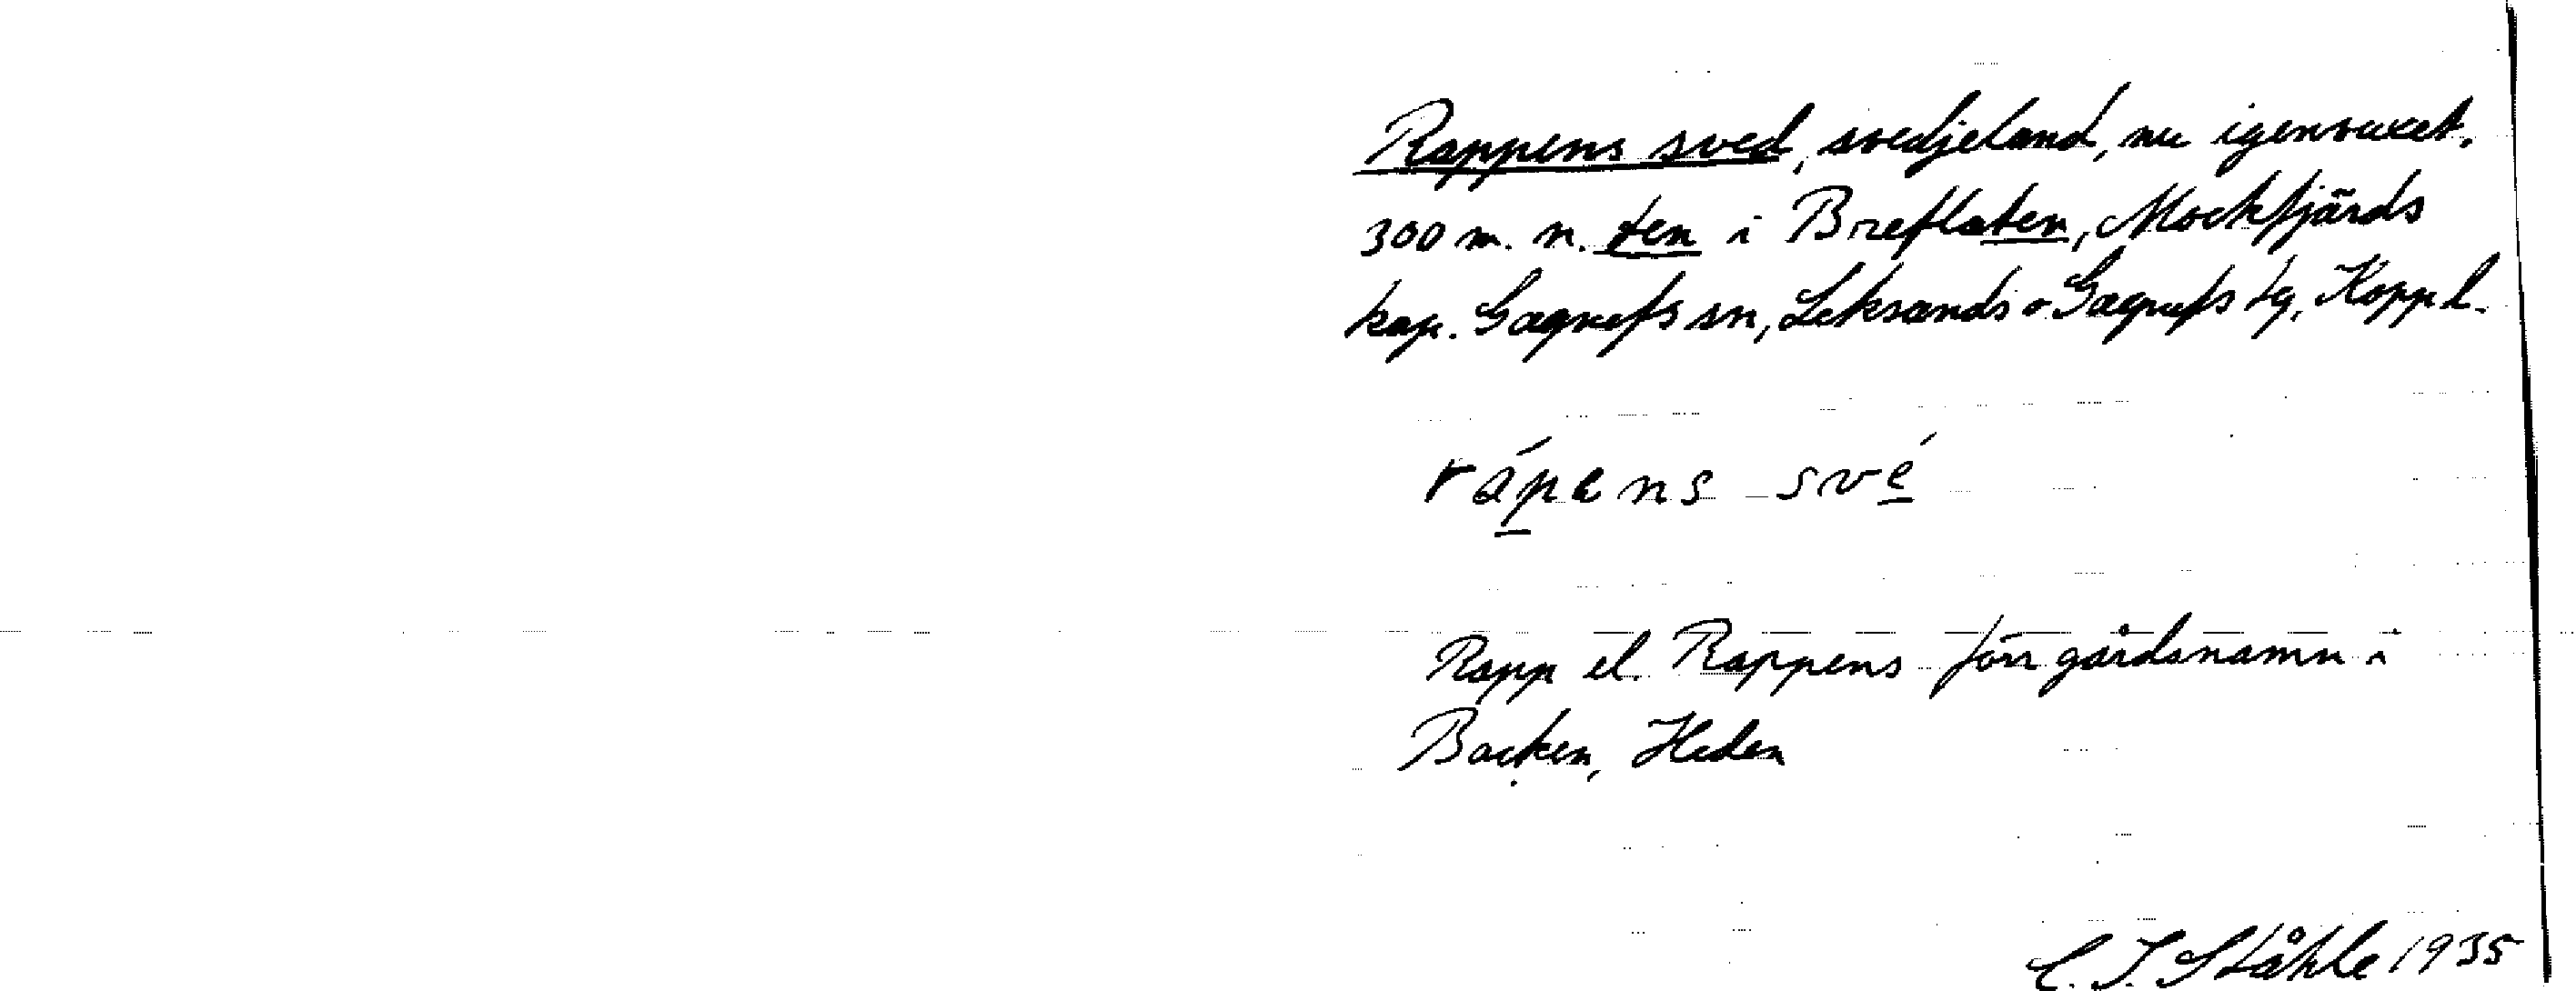 Rappens sved, svedjeland, nu igenvuxet.
300 m. n. ten i Breflaten, Mockfjärds
kap. Gagnefs sn, Leksands o Gagnefs tg, Kopp l.
rápens své
Rapp el. Rappens förr gårdsnamn i
Backen, Heden
C. I. Ståhle 1935